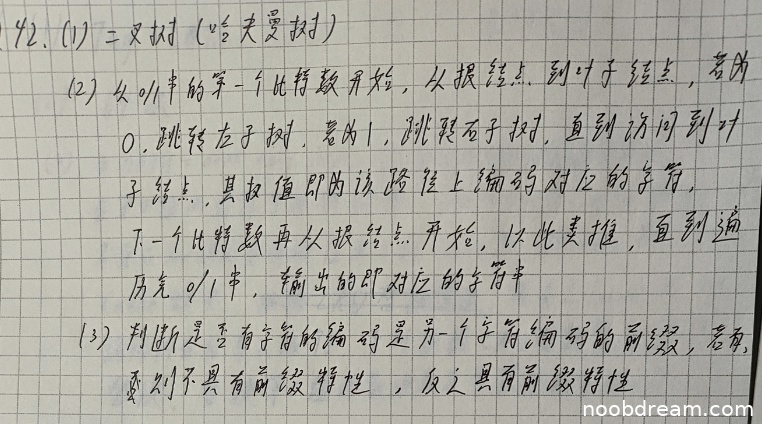 42. (1) 二叉树 (哈夫曼树)
(2) 从0/1串的第一个比特数开始, 从根结点到叶子结点, 若为
0, 跳转左子树, 若为1, 跳转右子树, 直到访问到叶
子结点, 其权值即为该路径上编码对应的字符,
下一个比特数再从根结点开始, 以此类推, 直到遍
历完0/1串, 输出的即对应的字符串
(3) 判断是否有字符的编码是另一个字符编码的前缀, 若有,
则不具有前缀特性, 反之具有前缀特性
noobdream.com